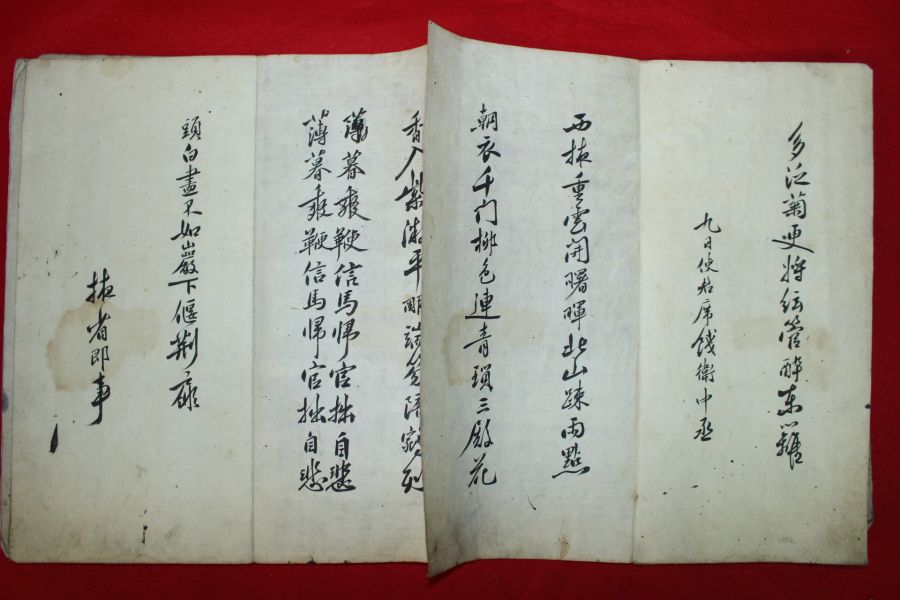 多泛菊更將絃管醉東籬
九日使君席餞衛中丞
西掖重雲開曙暉北山疎雨點
朝衣千門柳色連青瑣三殿花
香入紫微平明端笏陪鵷列
薄暮垂鞭信馬歸官拙自悲
薄暮垂鞭信馬歸官拙自悲
頭白盡不如巖下偃荊扉
掖省即事